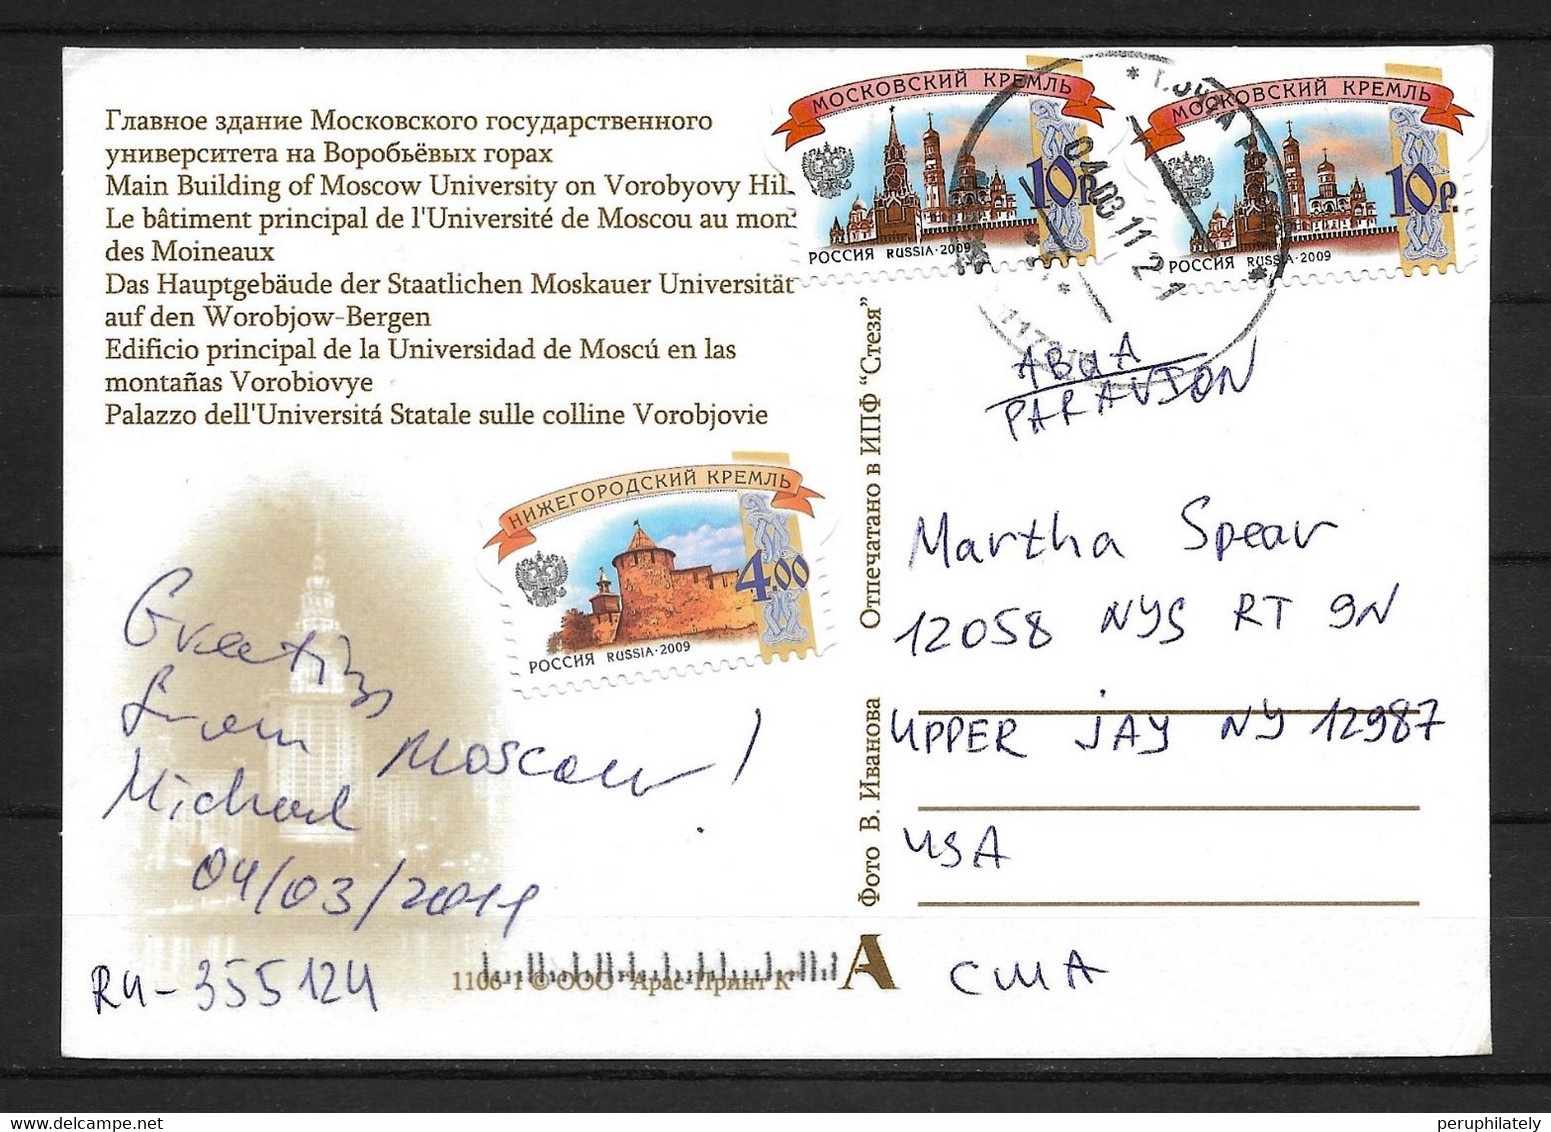 Главное здание Московского государственного
университета на Воробьёвых горах
Main Building of Moscow University on Vorobyovy Hil
Le bâtiment principal de l'Université de Moscou au mon
des Moineaux
Das Hauptgebäude der Staatlichen Moskauer Universität
auf den Worobjow-Bergen
Edificio principal de la Universidad de Moscú en las
montañas Vorobiovye
Palazzo dell'Universitá Statale sulle colline Vorobjovie
МОСКОВСКИЙ КРЕМЛЬ
10р.
РОССИЯ RUSSIA·2009
МОСКОВСКИЙ КРЕМЛЬ
10р.
РОССИЯ RUSSIA·2009
04 03 11 21
НИЖЕГОРОДСКИЙ КРЕМЛЬ
4.00
РОССИЯ RUSSIA·2009
Greetings
from Moscow!
Michael
04/03/2011
RU-355124
1106-1 © ООО "Арас-Принт К"
Отпечатано в ИПФ "Стезя"
Фото В. Иванова
А
АВИА
PAR AVION
Martha Spear
12058 NYS RT 9N
UPPER JAY NY 12987
USA
США
peruphilately